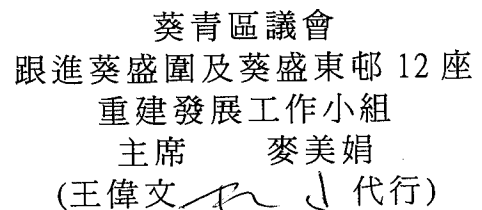 葵青區議會
跟進葵盛圍及葵盛東邨 12 座
重建發展工作小組
主席 麥美娟
(王偉文 代行)